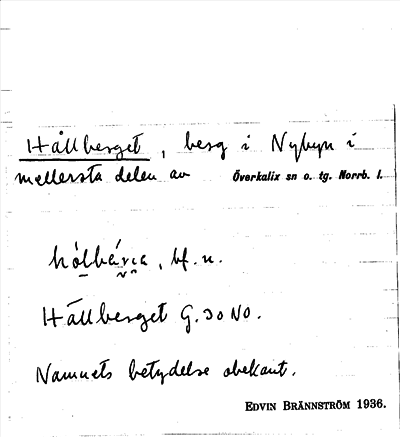 Hållberget, berg i Nybyn i
mellersta delen av Överkalix sn o. tg. Norrb. l.
bf. n.
Hållberget G. 30 NO.
Namnets betydelse obekant.
EDVIN BRÄNNSTRÖM 1936.